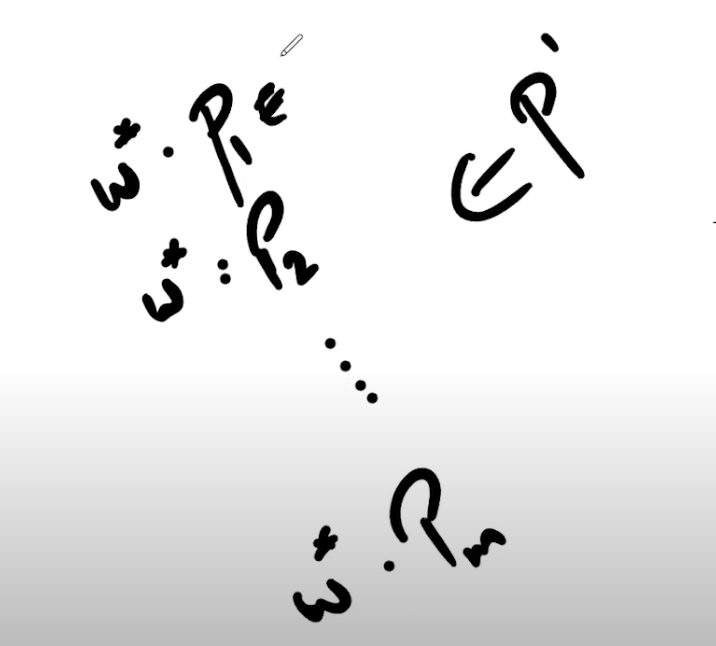 w* · P₁ ∈
∈ P'
w* : P₂
w* · Pₘ